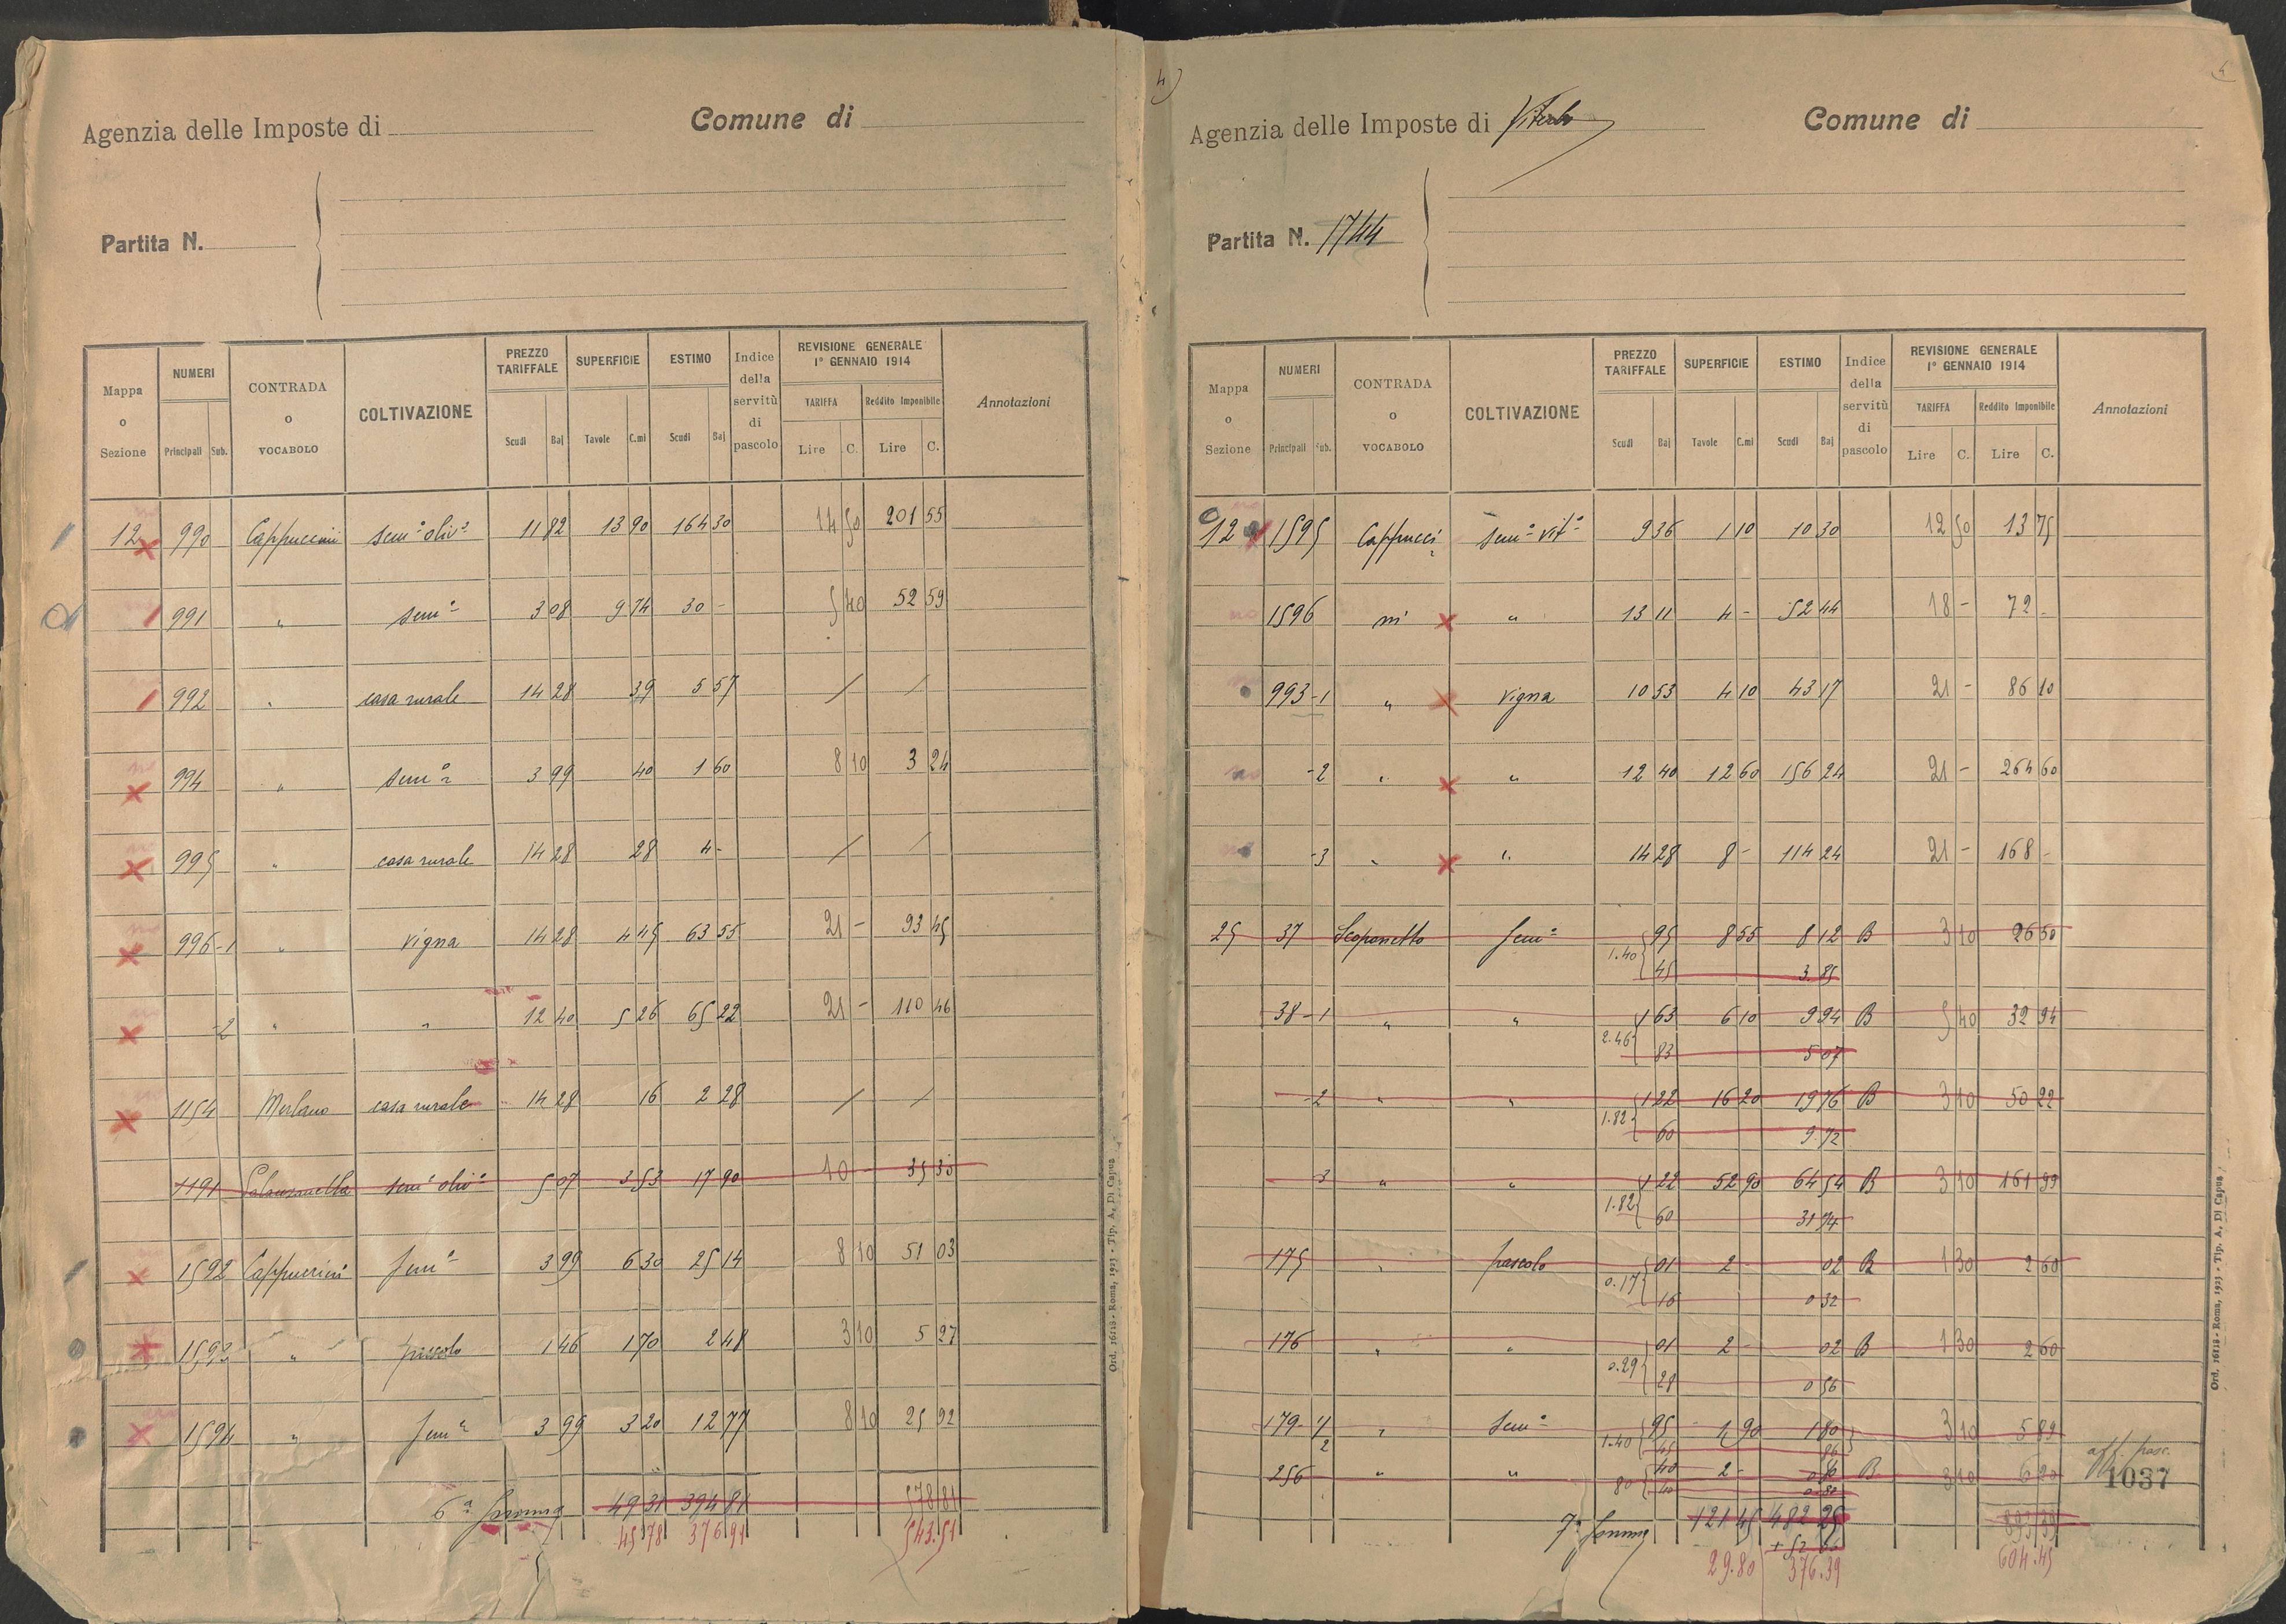 Agenzia delle Imposte di
Comune di
Partita N.
Mappa o Sezione | NUMERI Principali Sub. | CONTRADA o VOCABOLO | COLTIVAZIONE | PREZZO TARIFFALE Scudi Baj | SUPERFICIE Tavole C.mi | ESTIMO Scudi Baj | Indice della servitù di pascolo | REVISIONE GENERALE 1° GENNAIO 1914 TARIFFA Lire C. Reddito Imponibile Lire C. | Annotazioni
12 990 Cappuccini sem° oliv° 11 82 13 90 164 30 14 50 201 55
991 " sem° 3 08 9 74 30 - 5 40 52 59
992 " casa rurale 14 28 39 5 57 / /
994 " sem° 3 99 40 1 60 8 10 3 24
995 " casa rurale 14 28 28 4 - / /
996-1 " vigna 14 28 4 45 63 55 21 - 93 45
-2 " " 12 40 5 26 65 22 21 - 110 46
1154 Merlano casa rurale 14 28 16 2 28 / /
1191 sem° oliv° 5 07 3 53 17 90 10 - 35 35
1592 Cappuccini sem° 3 99 6 30 25 14 8 10 51 03
1593 " pascolo 1 46 1 70 2 48 3 10 5 27
1594 " sem° 3 99 3 20 12 77 8 10 25 92
6ª Somma 49 31 394 81 578 81
45 78 376 91 543.51
Ord. 16118 - Roma, 1923 - Tip. A. Di Capua
4)
Agenzia delle Imposte di Viterbo
Comune di
Partita N. 1744
Mappa o Sezione | NUMERI Principali Sub. | CONTRADA o VOCABOLO | COLTIVAZIONE | PREZZO TARIFFALE Scudi Baj | SUPERFICIE Tavole C.mi | ESTIMO Scudi Baj | Indice della servitù di pascolo | REVISIONE GENERALE 1° GENNAIO 1914 TARIFFA Lire C. Reddito Imponibile Lire C. | Annotazioni
12 1595 Cappucci sem° vit° 9 36 1 10 10 30 12 50 13 75
1596 ni " 13 11 4 - 52 44 18 - 72 -
993-1 " vigna 10 53 4 10 43 17 21 - 86 10
-2 " " 12 40 12 60 156 24 21 - 264 60
-3 " " 14 28 8 - 114 24 21 - 168 -
25 37 Scoponetto sem° 95 8 55 8 12 B 3 10 26 50
1.40 45 3.85
38-1 " " 1 63 6 10 9 94 B 5 40 32 94
2.46 83 5 07
-2 " " 1 22 16 20 19 76 B 3 10 50 22
1.82 60 9.72
-3 " " 1 22 52 90 64 54 B 3 10 161 99
1.82 60 31 74
175 " pascolo 01 2 - 02 B 1 30 2 60
0.17 16 0 32
176 " " 01 2 - 02 B 1 30 2 60
0.29 28 0 56
179-1 " sem° 95 1 90 1 80 3 10 5 89
2 1.40 45 86
256 " " 40 2 - 0 80 B 3 10 6 20
80 40 0.80
1037
7ª Somma 121 45 482 25
29.80 376.39 604.45
Ord. 16118 - Roma, 1923 - Tip. A. Di Capua